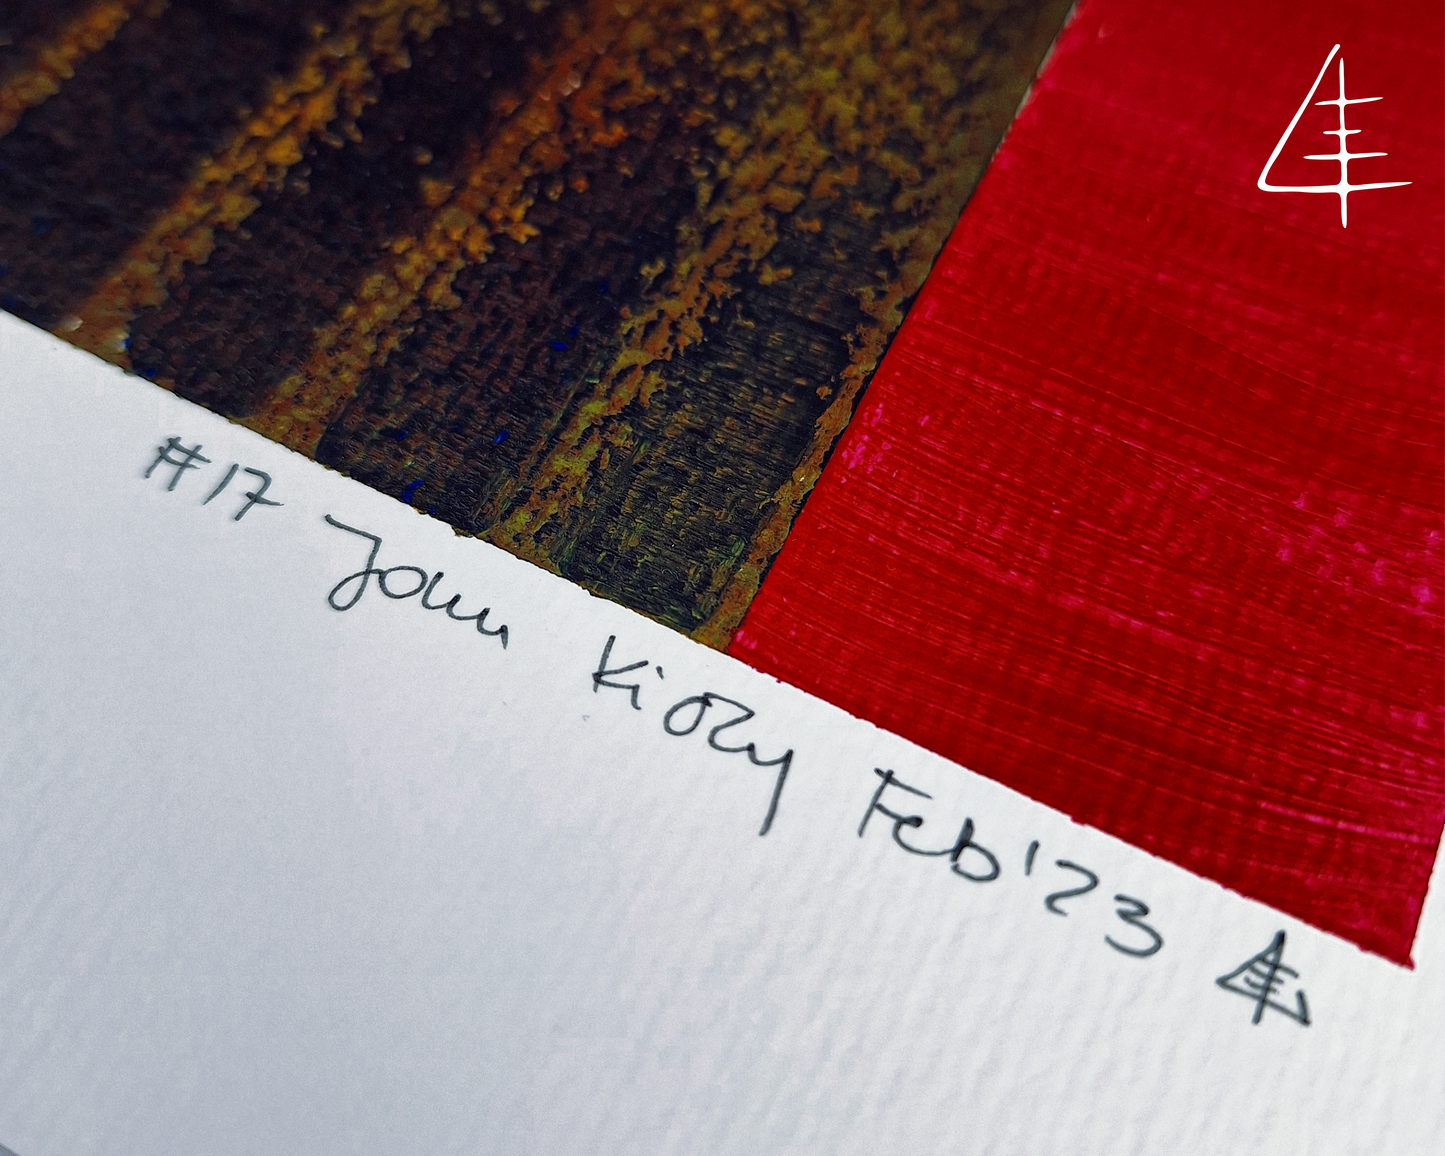 #17 John Kioly Feb '23